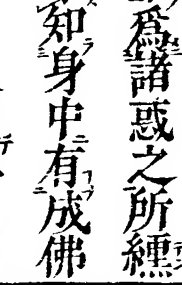 爲諸惑之所纒
知身中有成佛